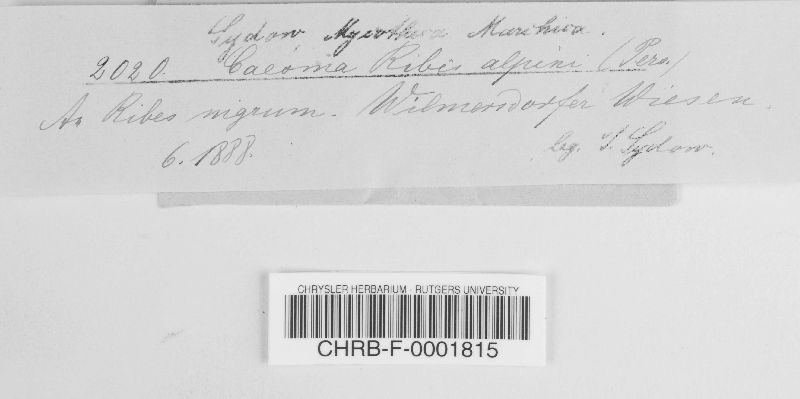 Sydow Mycotheca Marchica.
2020. Caeoma Ribis alpini (Pers.)
An Ribes nigrum. Wilmersdorfer Wiesen.
6. 1888. leg. P. Sydow.
CHRYSLER HERBARIUM - RUTGERS UNIVERSITY
CHRB-F-0001815